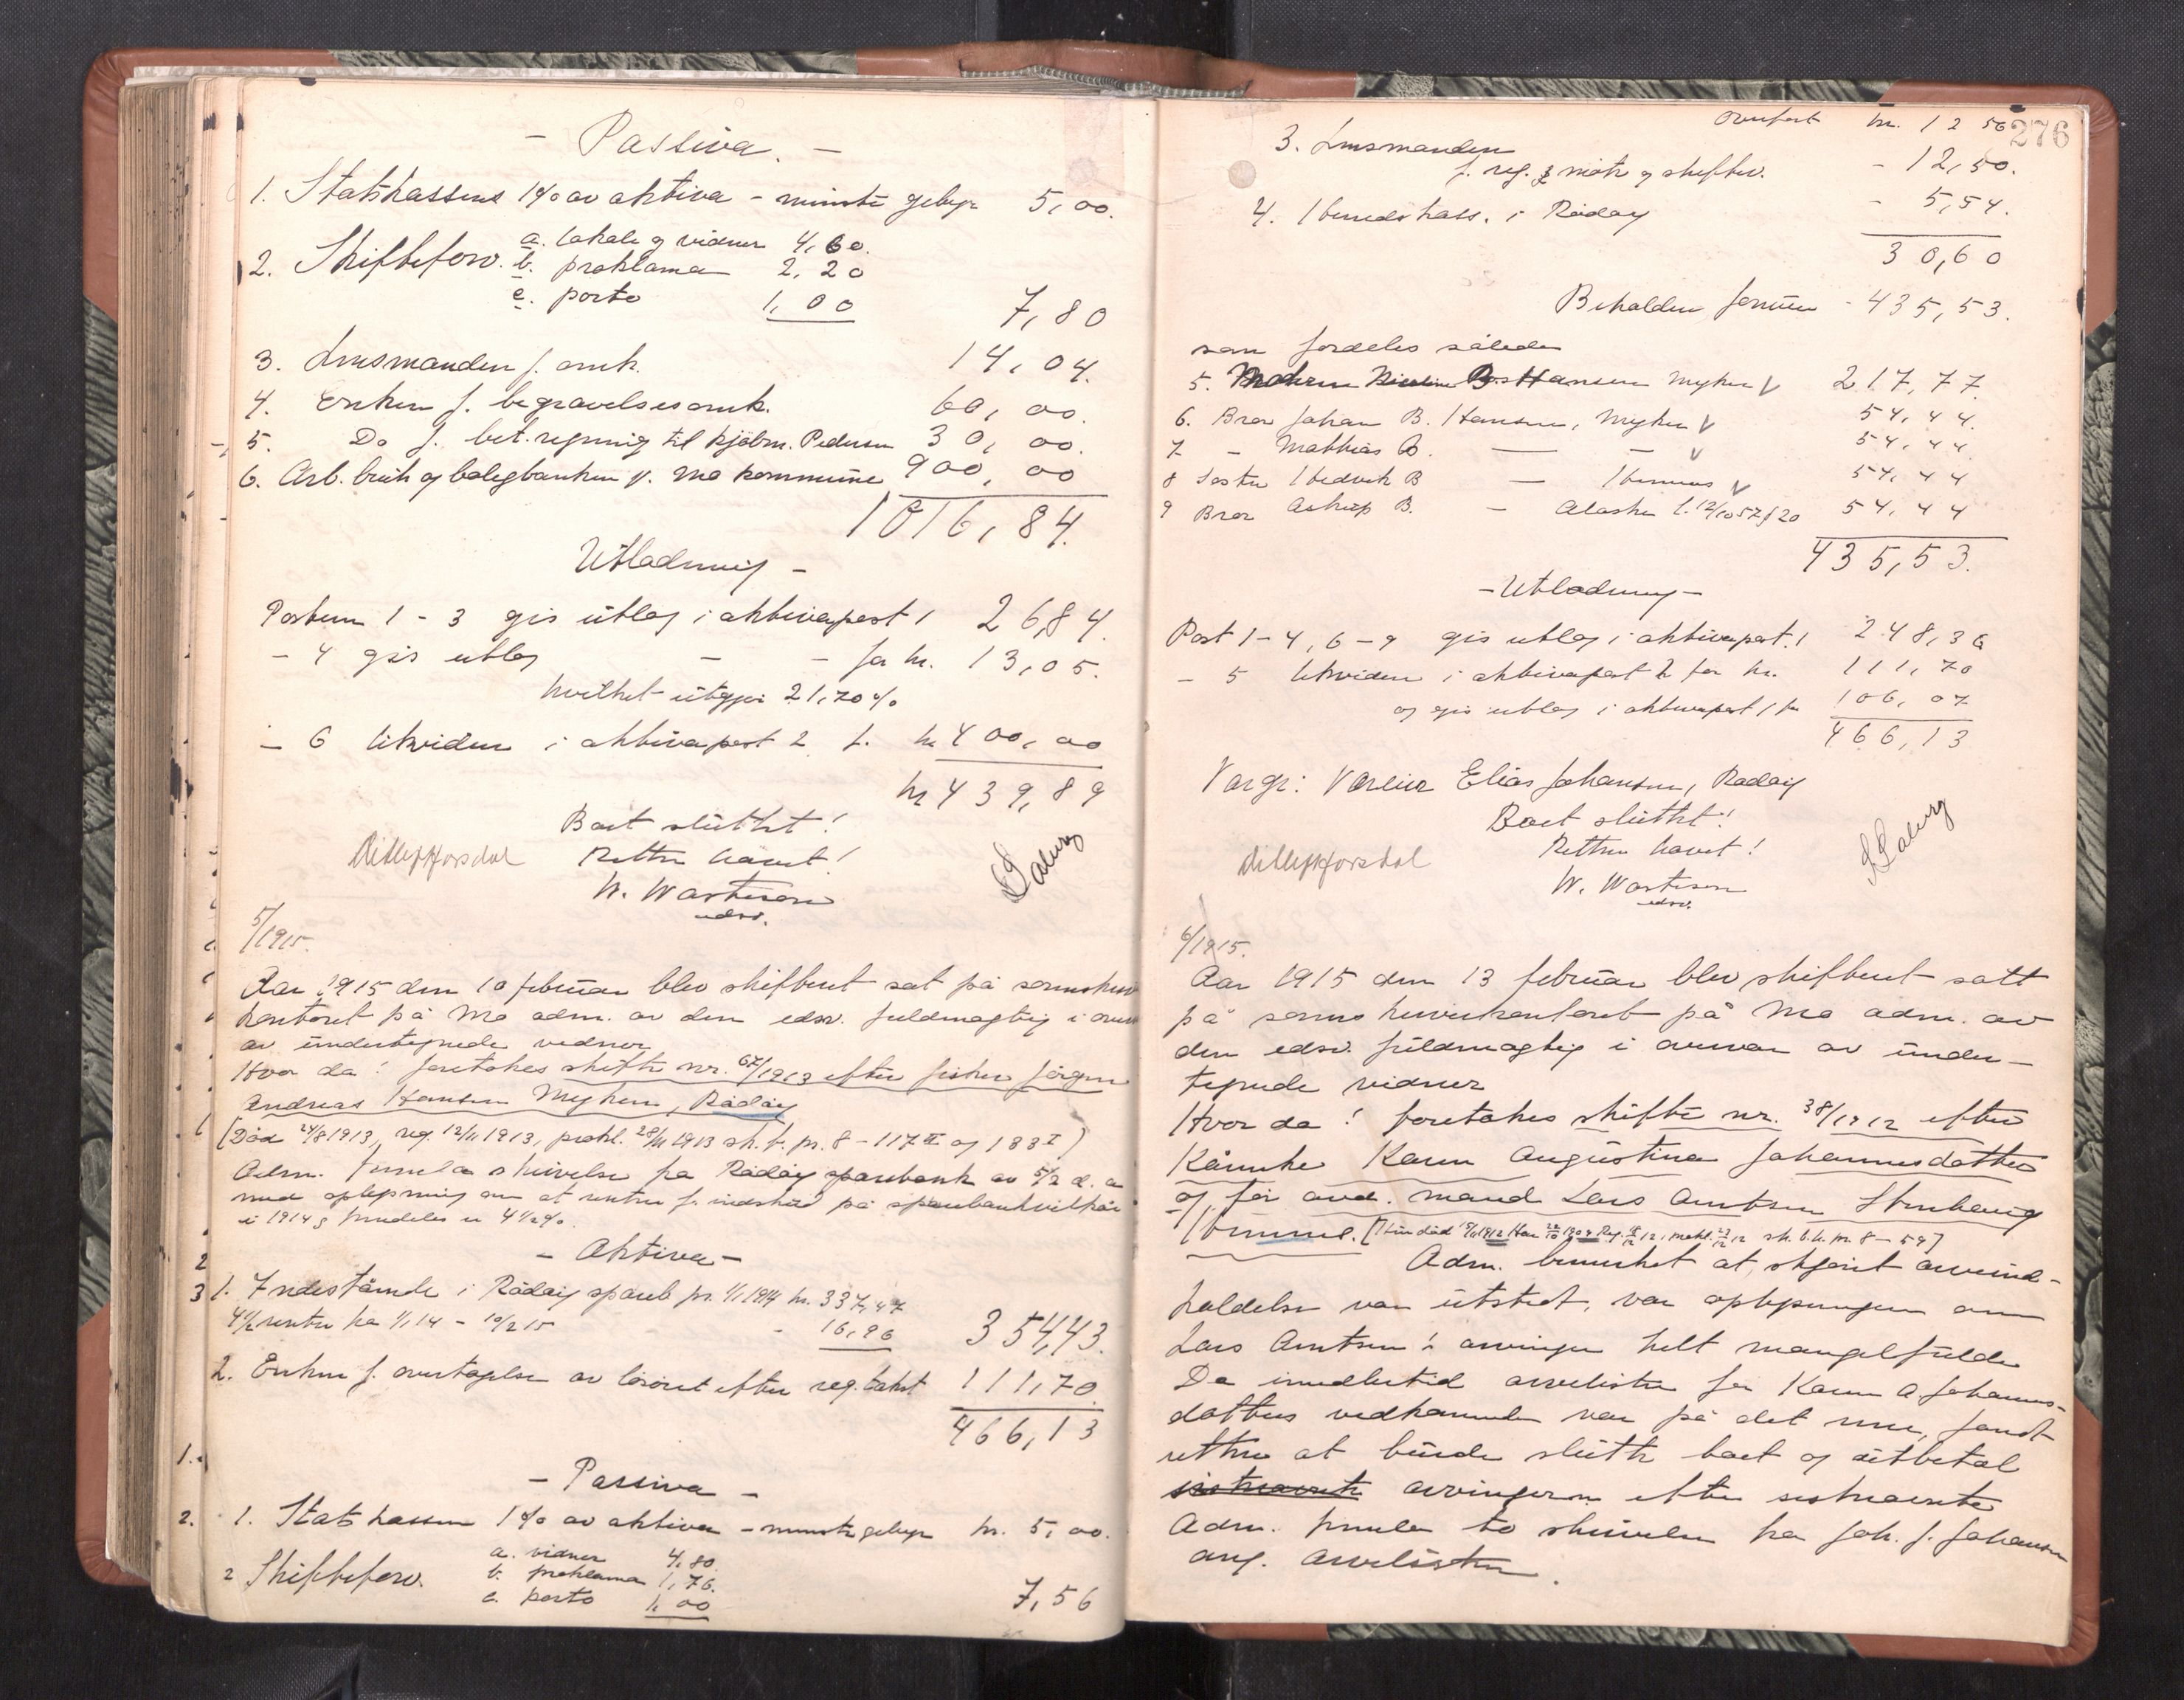 - Passiva. -
1. Statskassens 1% av aktiva - minste gebyr 5,00.
2. Skifteforv. a. lokale og vidner 4,60.
b. proklama 2,20
c. porto 1,00 7,80
3. Lensmanden f. omk. 14,04.
4. Enken f. begravelsesomk. 60,00.
5. Do f. bet. regning til kjøbm. Pedersen 30,00.
6. Arb. bruk og boligbanken v. Mo kommune 900,00
1016,84.
Utlodning -
Posterne 1 - 3 gis utlæg i aktivapost 1 26,84.
- 4 gis utlæg - - for kr. 13,05.
hvilket utgjør 21,70%
- 6 likvideres i aktivapost 2 f. kr 400,00
kr 439,89
Boet sluttet!
Retten hævet!
W. Wartison
edsv.
5/1915.
Aar 1915 den 10 februar blev skifteret sat på sorenskriver
kontoret på Mo adm. av den edsv. fuldmægtig i overv
av undertegnede vidner
Hvor da! foretokes skifte nr. 67/1913 efter fisker Jørgen
Andreas Hansen Myken, Rødøy
(Død 24/8 1913, reg. 12/11 1913, prokl. 28/11 1913 sk. b. pr. 8 - 117 II og 183 I)
Adm. fremla skrivelse fra Rødøy sparebank av 5/2 d. a
med oplysning om at renten f. indskud på sparebankvilkår
i 1914 fremdeles er 4½%.
- Aktiva -
1. Indestående i Rødøy spareb. pr. 1/1 1914 kr. 337,47
4½ renter fra 1/1 14 - 10/2 15 - 16,96 354,43.
2. Enken f. overtagelse av løsøret efter reg. takst 111,70
466,13
- Passiva -
1. Statskassen 1% av aktiva - minste gebyr kr. 5,00.
2 Skifteforv. a. vidner 4,80.
b. proklama 1,76.
c. porto 1,00 7,56
276
Overført kr. 12 56
3. Lensmanden
f. reg. møte og skiftev. - 12,50.
4. Herredskass. i Rødøy - 5,54.
30,60
Beholden formue - 435,53.
som fordeles således
5. B. Hansen Myken 217,77.
6. Bror Johan B. Hansen, Myken 54,44.
7 - Mathias B. — — 54,44
8 Søster Hedvik B — Hemnes 54,44
9 Bror Astrup B. - Alaska l. 12/10 57/20 54,44
435,53.
- Utlodning -
Post 1 - 4, 6 - 9 gis utlæg i aktivapost. 1 248,36
- 5 likvideres i aktivapost 2 for kr. 111,70
og gis utlæg i aktivapost 1 for 106,07
466,13
Værge: Værleier Elias Johansen, Rødøy
Boet sluttet!
Retten hævet!
W. Wartison
edsv.
6/1915.
Aar 1915 den 13 februar blev skifteret satt
på sorenskriverkontoret på Mo adm. av
den edsv. fuldmægtig i overvær av under-
tegnede vidner
Hvor da! foretokes skifte nr. 38/1912 efter
Kårenke Karen Augustina Johannesdatter
og før avd. mand Lars Arntsen Stenhaug
Hemnes. [Hun død 1912 Han 1904 sk. b. pr. 8 - 59]
Adm. bemerket at, skjønt arveind-
kaldelse var utstedt, var oplysningen om
Lars Arntsens arvinger helt mangelfulde
Da imidlertid arvelisten for Karen A. Johannes-
datters vedkommende var på det rene, fandt
retten at burde slutte boet og utbetale
arvingerne efter sistnævnte
Adm. fremla to skrivelser fra Joh. J. Johansen
ang. arvelisten.